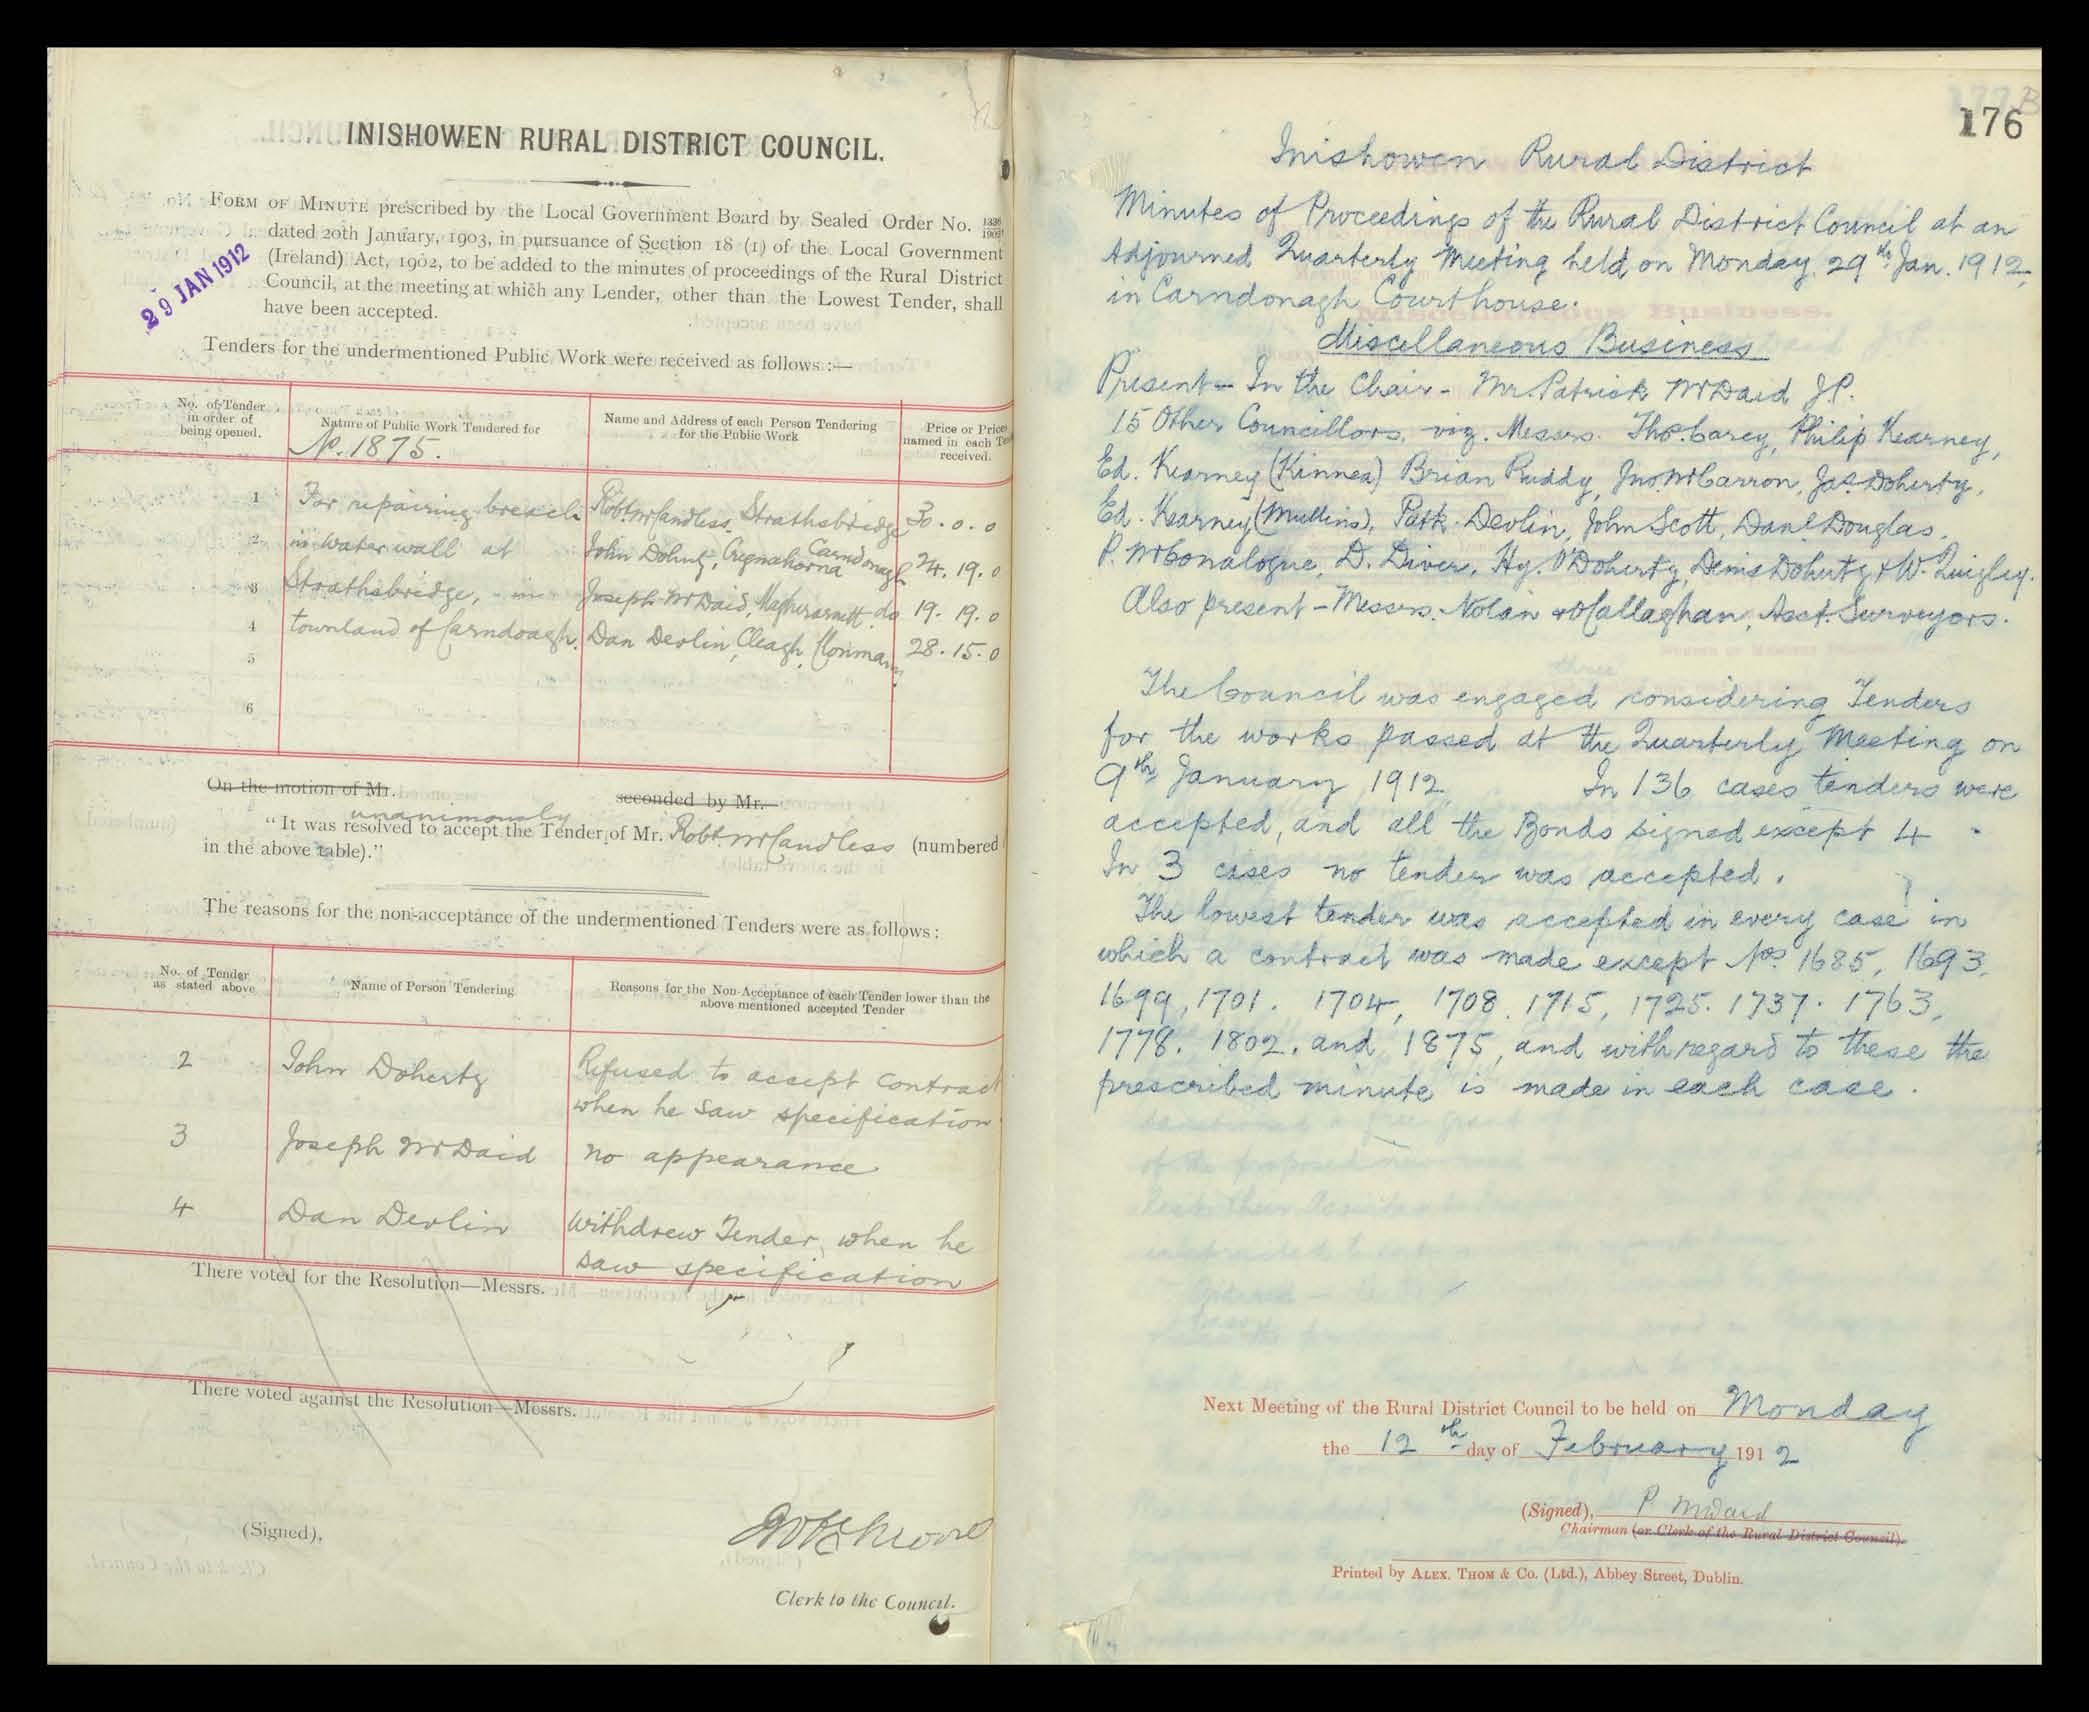 INISHOWEN RURAL DISTRICT COUNCIL.
FORM OF MINUTE prescribed by the Local Government Board by Sealed Order No.
dated 20th January, 1903, in pursuance of Section 18 (1) of the Local Government
(Ireland) Act, 1902, to be added to the minutes of proceedings of the Rural District
Council, at the meeting at which any Lender, other than the Lowest Tender, shall
have been accepted.
29 JAN 1912
Tenders for the undermentioned Public Work were received as follows :—
No. of Tender in order of being opened.
Nature of Public Work Tendered for
No. 1875.
Name and Address of each Person Tendering for the Public Work
Price or Prices named in each received.
1 For repairing breach Robt. McCandless, Strathsbridge 30.0.0
2 in Water wall at John Doherty, Carndonagh 24.19.0
3 Strathsbridge, in Joseph McDaid, do 19.19.0
4 townland of Carndoagh. Dan Devlin, Cleagh, Clonmany 28.15.0
5
6
On the motion of Mr. seconded by Mr.
unanimously
"It was resolved to accept the Tender of Mr. Robt. McCandless (numbered
in the above table)."
The reasons for the non-acceptance of the undermentioned Tenders were as follows :
No. of Tender as stated above
Name of Person Tendering
Reasons for the Non-Acceptance of each Tender lower than the
above mentioned accepted Tender
2 John Doherty Refused to accept contract
when he saw specification
3 Joseph McDaid no appearance
4 Dan Devlin Withdrew Tender, when he
saw specification
There voted for the Resolution—Messrs.
There voted against the Resolution—Messrs.
(Signed),
Clerk to the Council.
176
Inishowen Rural District
Minutes of Proceedings of the Rural District Council at an
Adjourned Quarterly Meeting held on Monday 29th Jan. 1912,
in Carndonagh Courthouse.
Miscellaneous Business
Present – In the Chair – Mr Patrick McDaid J.P.
15 Other Councillors, viz. Messrs. Thos. Carey, Philip Kearney,
Ed. Kearney (Kinnea) Brian Ruddy, Jno. McCarron, Jas. Doherty,
Ed. Kearney (Mullins), Patk. Devlin, John Scott, Danl. Douglas,
P. McConalogue, D. Diver, Hy. O'Doherty, Denis Doherty & W. Quigley.
Also present – Messrs. Nolan & O'Callaghan, Asst. Surveyors.
The Council was engaged considering Tenders
for the works passed at the Quarterly Meeting on
9th January 1912 In 136 cases tenders were
accepted, and all the Bonds signed except 4
In 3 cases no tender was accepted.
The lowest tender was accepted in every case in
which a contract was made except Nos. 1685, 1693,
1699, 1701. 1704, 1708. 1715, 1725. 1737. 1763,
1778. 1802. and 1875, and with regard to these the
prescribed minute is made in each case.
Next Meeting of the Rural District Council to be held on Monday
the 12th day of February 1912
(Signed), P McDaid
Chairman (or Clerk of the Rural District Council).
Printed by ALEX. THOM & Co. (Ltd.), Abbey Street, Dublin.